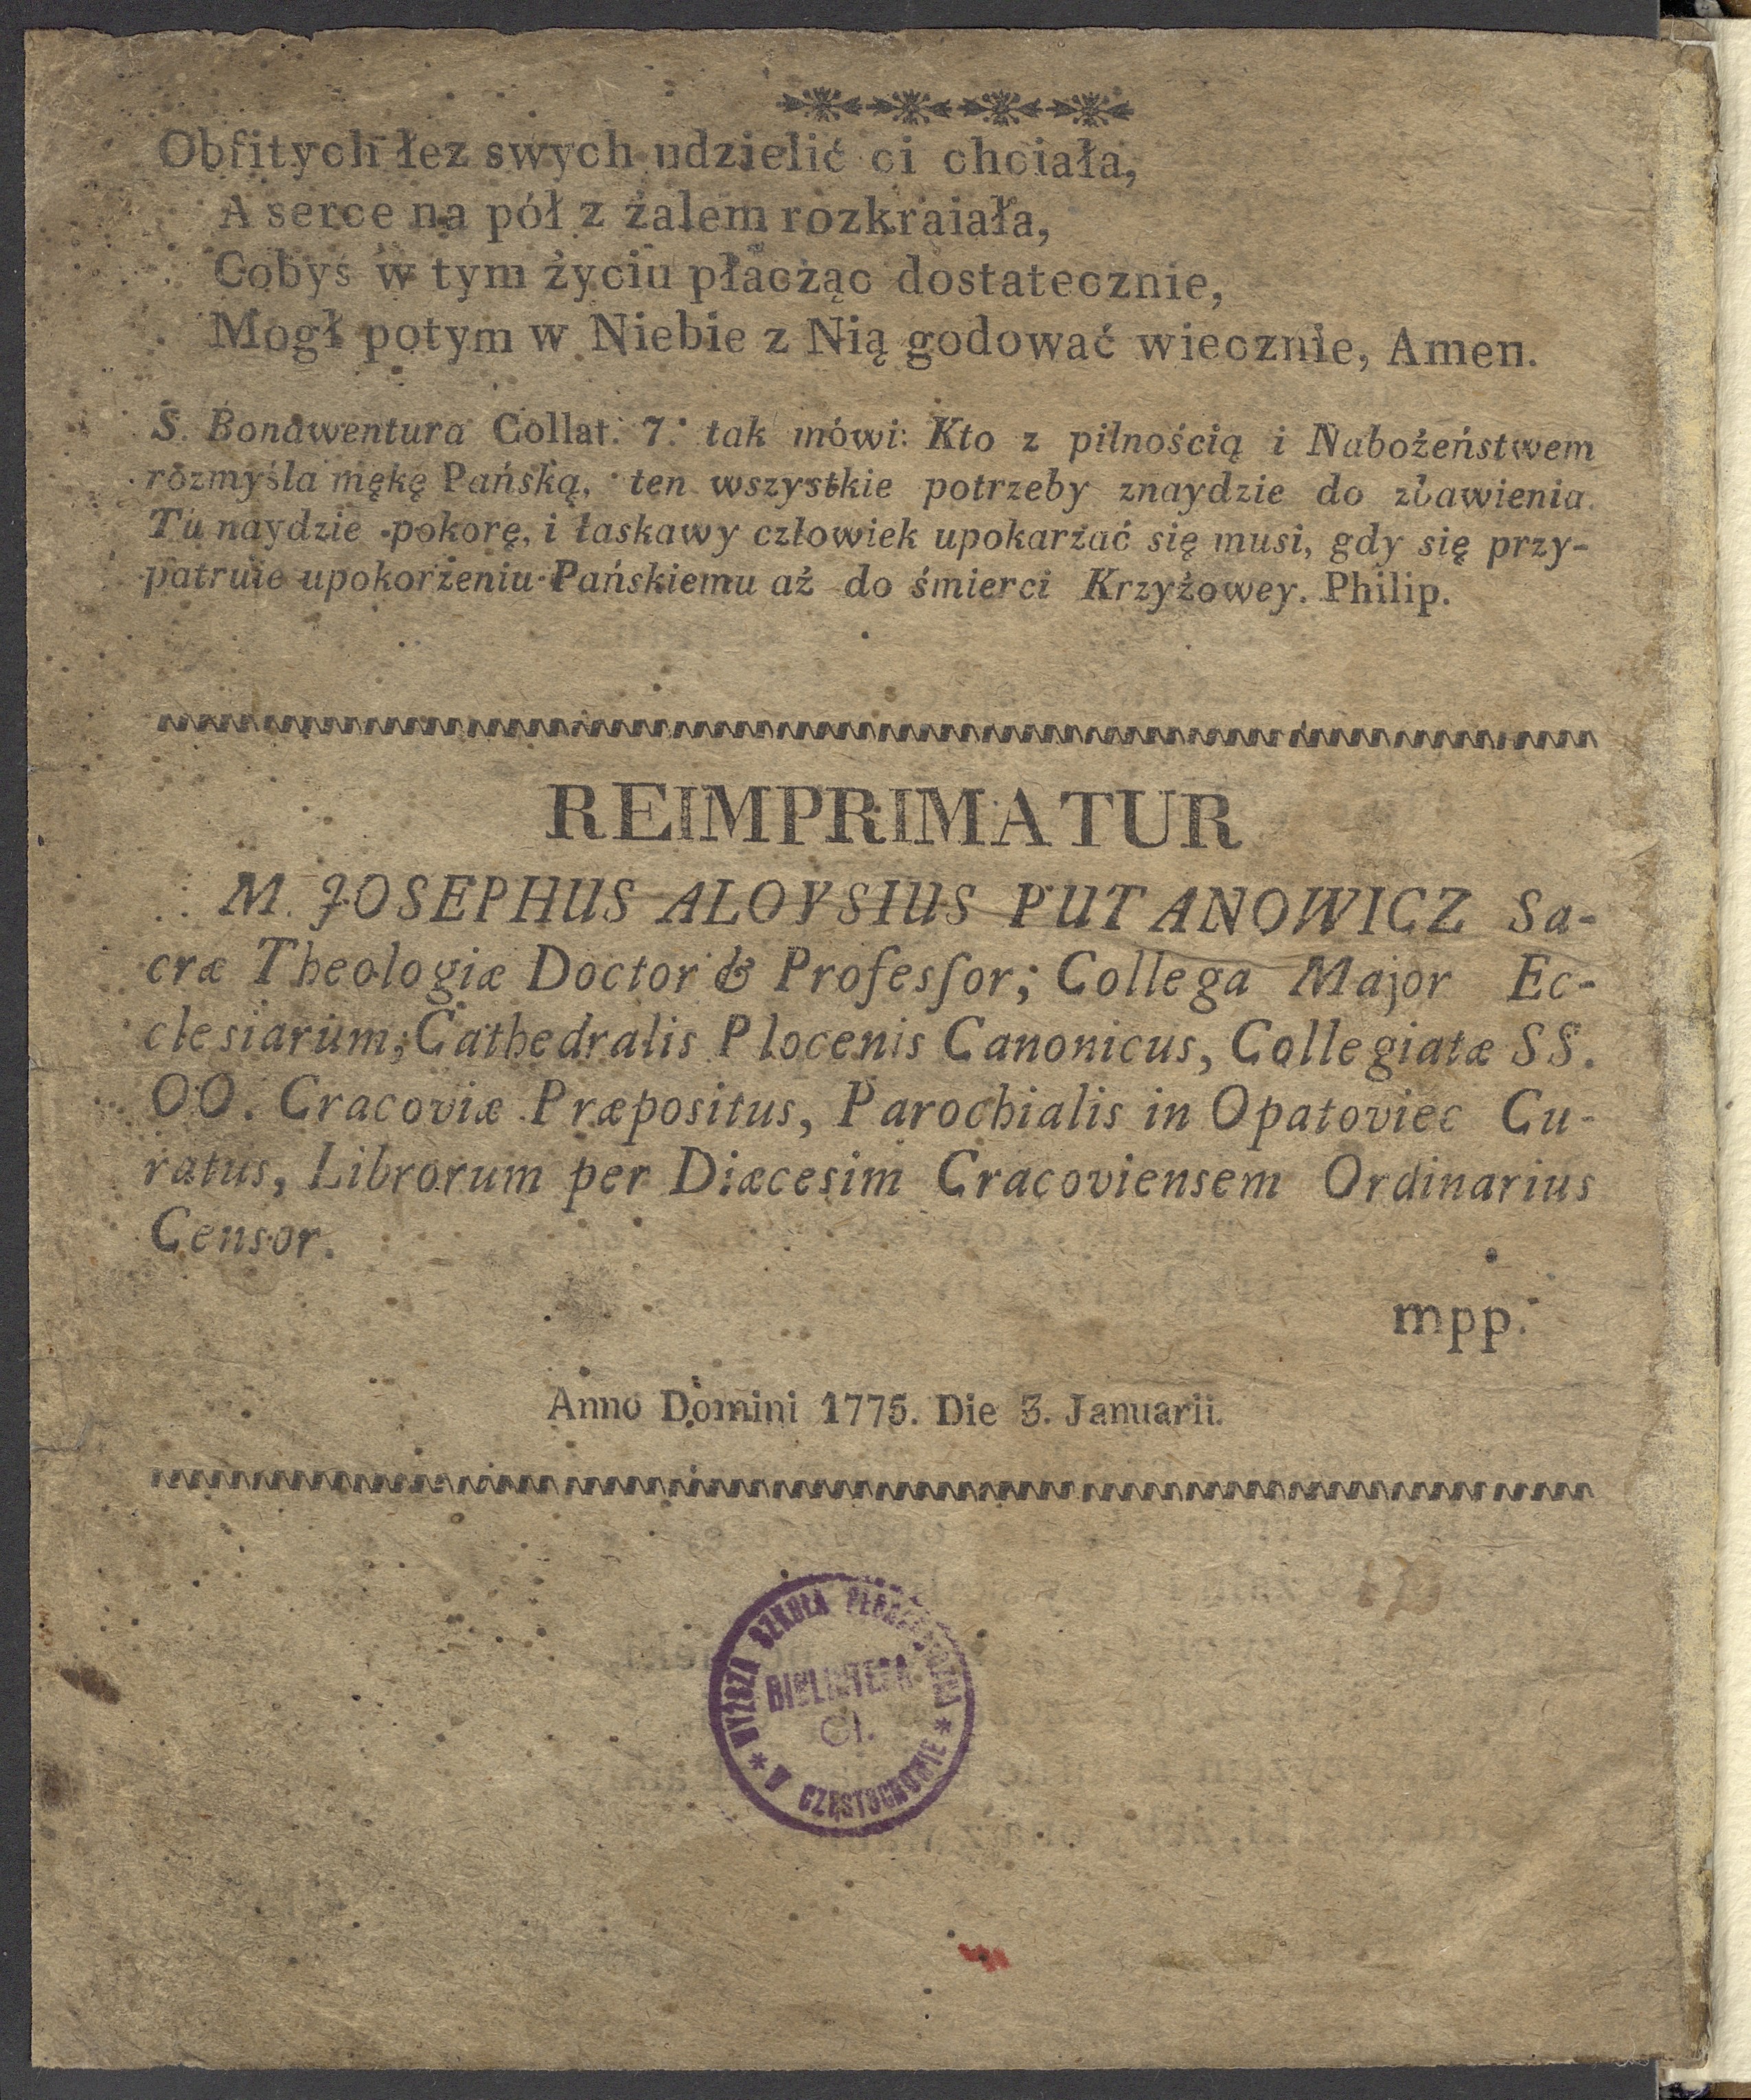 Obfitych łez swych udzielić ci chciała,
A serce na pół z żalem rozkraiała,
Cobyś w tym życiu płacżąc dostatecznie,
Mogł potym w Niebie z Nią godować wiecznie, Amen.
S. Bonawentura Collat. 7. tak mówi: Kto z pilnością i Nabożeństwem
rozmyśla mękę Pańską, ten wszystkie potrzeby znaydzie do zbawienia.
Tu naydzie pokorę, i łaskawy człowiek upokarżać się musi, gdy się przy-
patruie upokorżeniu Pańskiemu aż do śmierci Krzyżowey. Philip.
REIMPRIMATUR
M. JOSEPHUS ALOYSIUS PUTANOWICZ Sa-
cræ Theologiæ Doctor & Profesſor; Collega Major Ec-
clesiarum; Cathedralis Plocenis Canonicus, Collegiatæ SS.
OO. Cracoviæ Præpositus, Parochialis in Opatoviec Cu-
ratus, Librorum per Diæcesim Cracoviensem Ordinarius
Censor.
mpp.
Anno Domini 1775. Die 3. Januarii.
* WYŻSZA SZKOŁA PEDAGOGICZNA *
BIBLIOTEKA
Cl.
W CZĘSTOCHOWIE